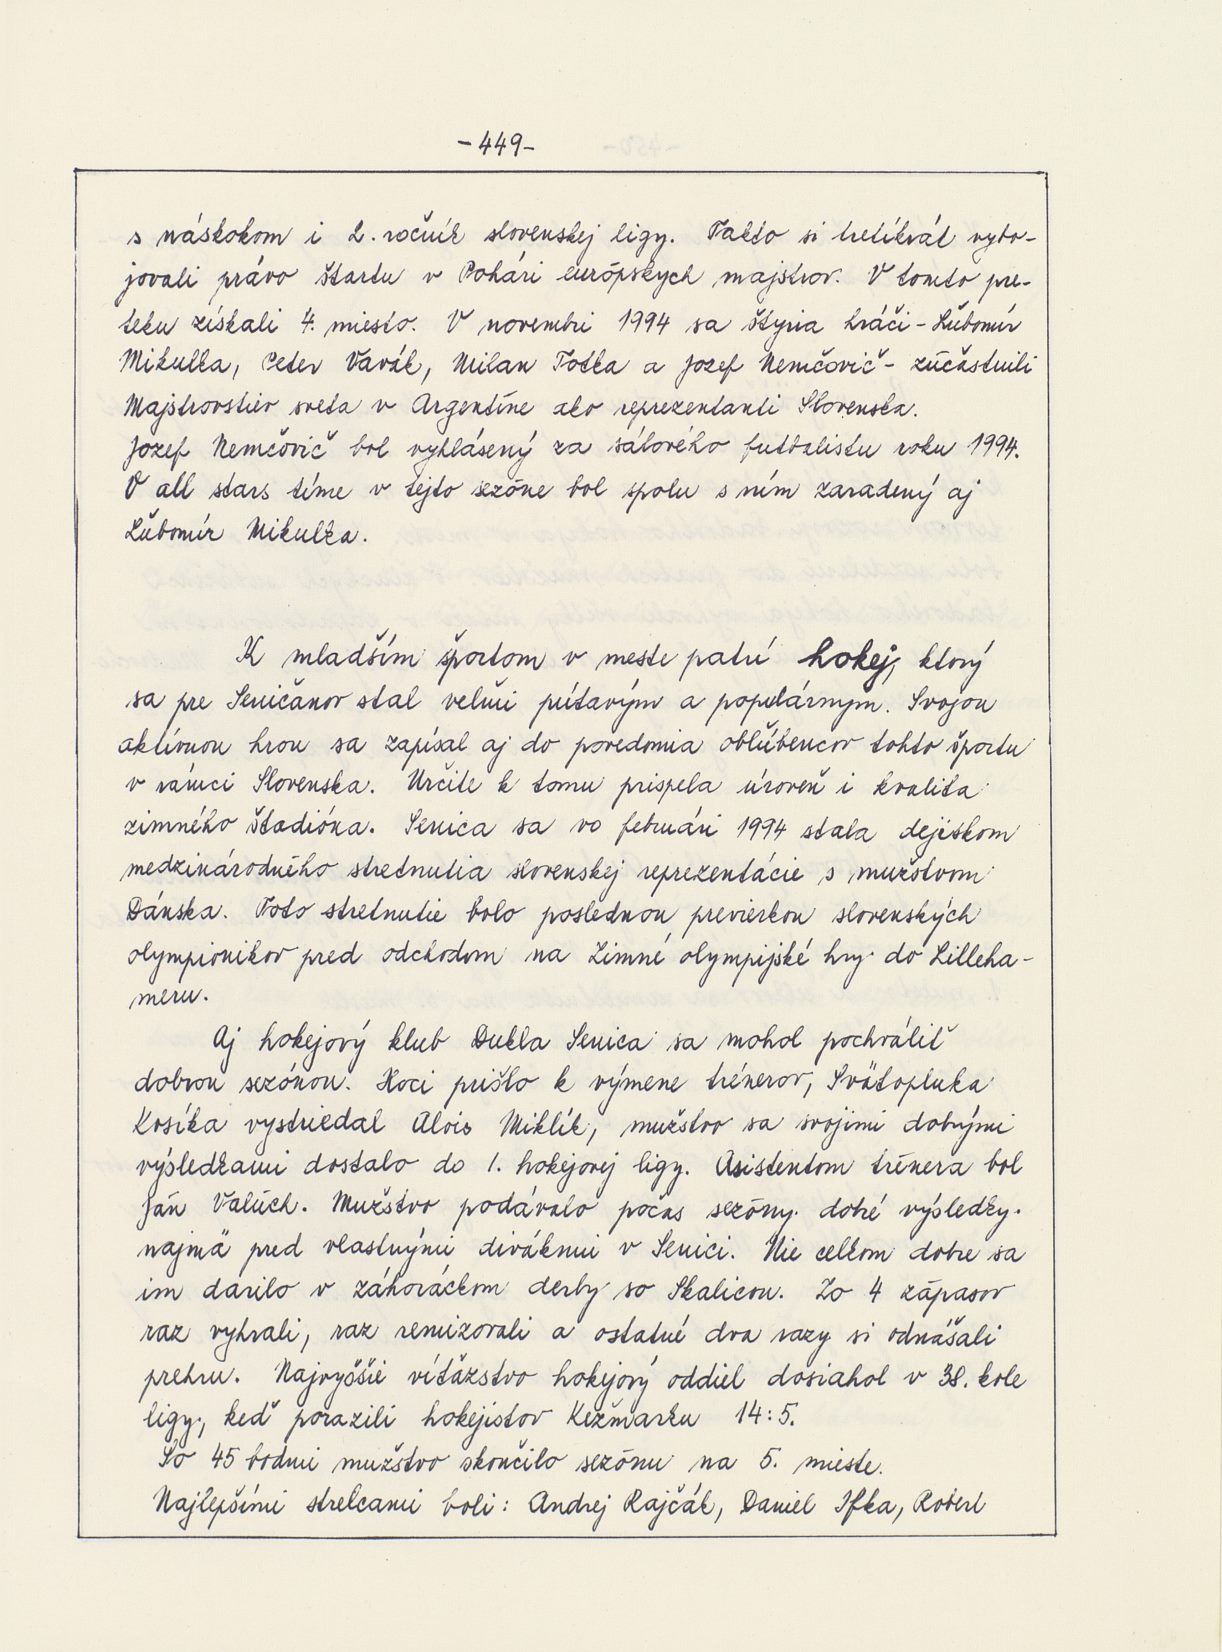 -449-
s náskokom i 2. ročník slovenskej ligy. Takto si tretíkrát vybo-
jovali právo štartu v Pohári európskych majstrov. V tomto pre-
teku získali 4. miesto. V novembri 1994 sa štyria hráči - Ľubomír
Mikulka, Peter Vavák, Milan Totka a Jozef Nemčovič - zúčastnili
Majstrovstiev sveta v Argentíne ako reprezentanti Slovenska.
Jozef Nemčovič bol vyhlásený za sálového futbalistu roku 1994.
V all stars tíme v tejto sezóne bol spolu s ním zaradený aj
Ľubomír Mikulka.
K mladším športom v meste patrí hokej, ktorý
sa pre Seničanov stal veľmi pútavým a populárnym. Svojou
aktívnou hrou sa zapísal aj do povedomia obľúbencov tohto športu
v rámci Slovenska. Určite k tomu prispela úroveň i kvalita
zimného štadióna. Senica sa vo februári 1994 stala dejiskom
medzinárodného stretnutia slovenskej reprezentácie s mužstvom
Dánska. Toto stretnutie bolo poslednou previerkou slovenských
olympionikov pred odchodom na Zimné olympijské hry do Lilleha-
meru.
Aj hokejový klub Dukla Senica sa mohol pochváliť
dobrou sezónou. Hoci prišlo k výmene trénerov, Svätopluka
Kosíka vystriedal Alois Miklík, mužstvo sa svojimi dobrými
výsledkami dostalo do 1. hokejovej ligy. Asistentom trénera bol
Ján Valúch. Mužstvo podávalo počas sezóny dobré výsledky.
najmä pred vlastnými divákmi v Senici. Nie celkom dobre sa
im darilo v záhoráckom derby so Skalicou. Zo 4 zápasov
raz vyhrali, raz remizovali a ostatné dva razy si odnášali
prehru. Najvyššie víťazstvo hokejový oddiel dosiahol v 38. kole
ligy, keď porazili hokejistov Kežmarku 14:5.
So 45 bodmi mužstvo skončilo sezónu na 5. mieste.
Najlepšími strelcami boli: Andrej Rajčák, Daniel Ifka, Robert